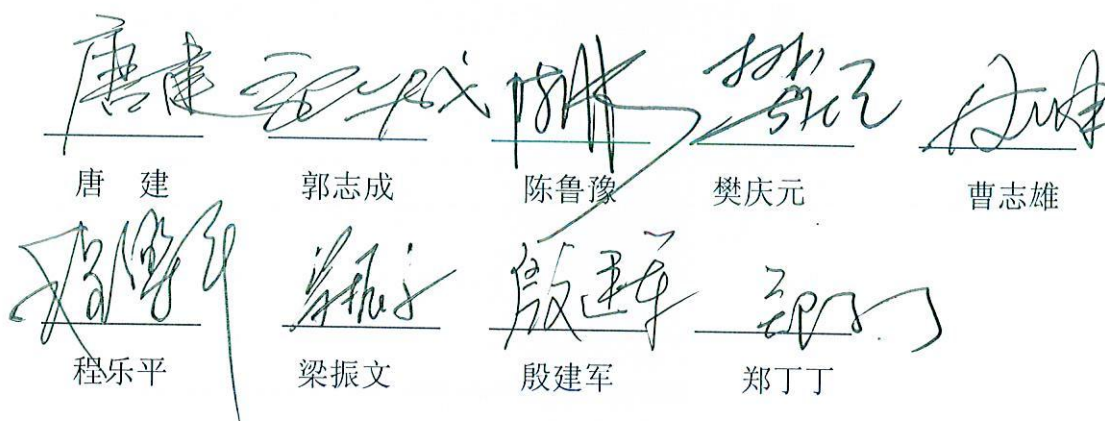 唐建 郭志成 陈鲁豫 樊庆元
唐　建 郭志成 陈鲁豫 樊庆元 曹志雄
程乐平 梁振文 殷建军 郑丁丁
程乐平 梁振文 殷建军 郑丁丁